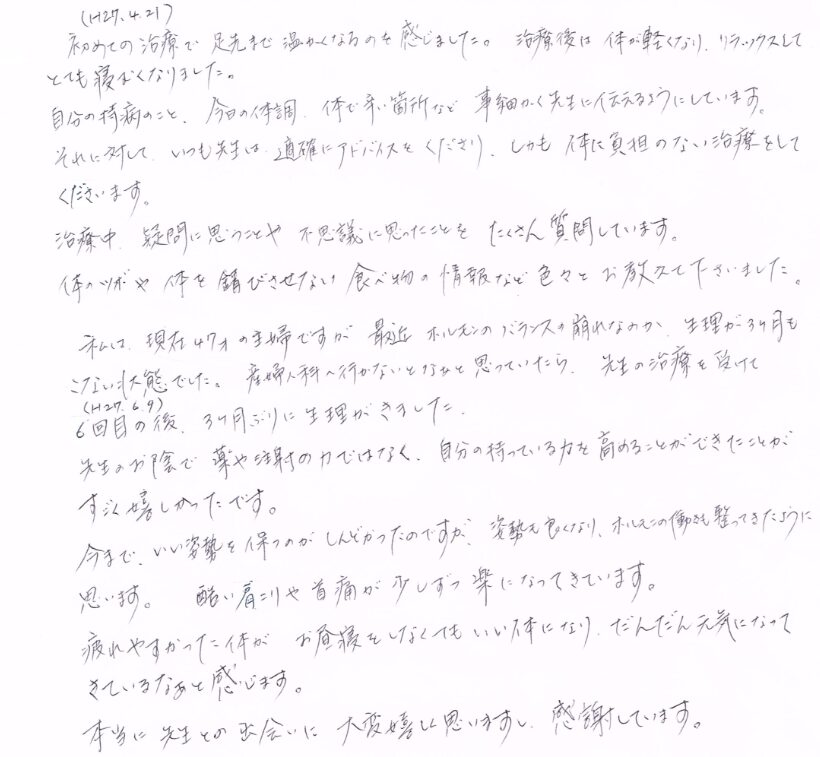 (H27.4.21)
初めての治療で足先まで温かくなるのを感じました。治療後は体が軽くなり、リラックスして
とても寝よくなりました。
自分の持病のこと、今日の体調、体で辛い箇所など事細かく先生に伝えるようにしています。
それに対して、いつも先生は、適確にアドバイスをくださり、しかも体に負担のない治療をして
くださいます。
治療中、疑問に思うことや不思議に思ったことをたくさん質問しています。
体のツボや体を錆びさせない食べ物の情報など色々とお教えて下さいました。
私は、現在47才の主婦ですが最近ホルモンのバランスの崩れなのか、生理が3ヶ月も
こない状態でした。産婦人科へ行かないとなぁと思っていたら、先生の治療を受けて
(H27.6.9)
6回目の後、3ヶ月ぶりに生理がきました。
先生のお陰で薬や注射の力ではなく、自分の持っている力を高めることができたことが
すごく嬉しかったです。
今まで、いい姿勢を保つのがしんどかったのですが、姿勢も良くなり、ホルモンの働きも整ってきたように
思います。酷い肩こりや首痛が少しずつ楽になってきています。
疲れやすかった体がお昼寝をしなくてもいい体になり、だんだん元気になって
きているなぁと感じます。
本当に先生との出会いに大変嬉しく思いますし、感謝しています。